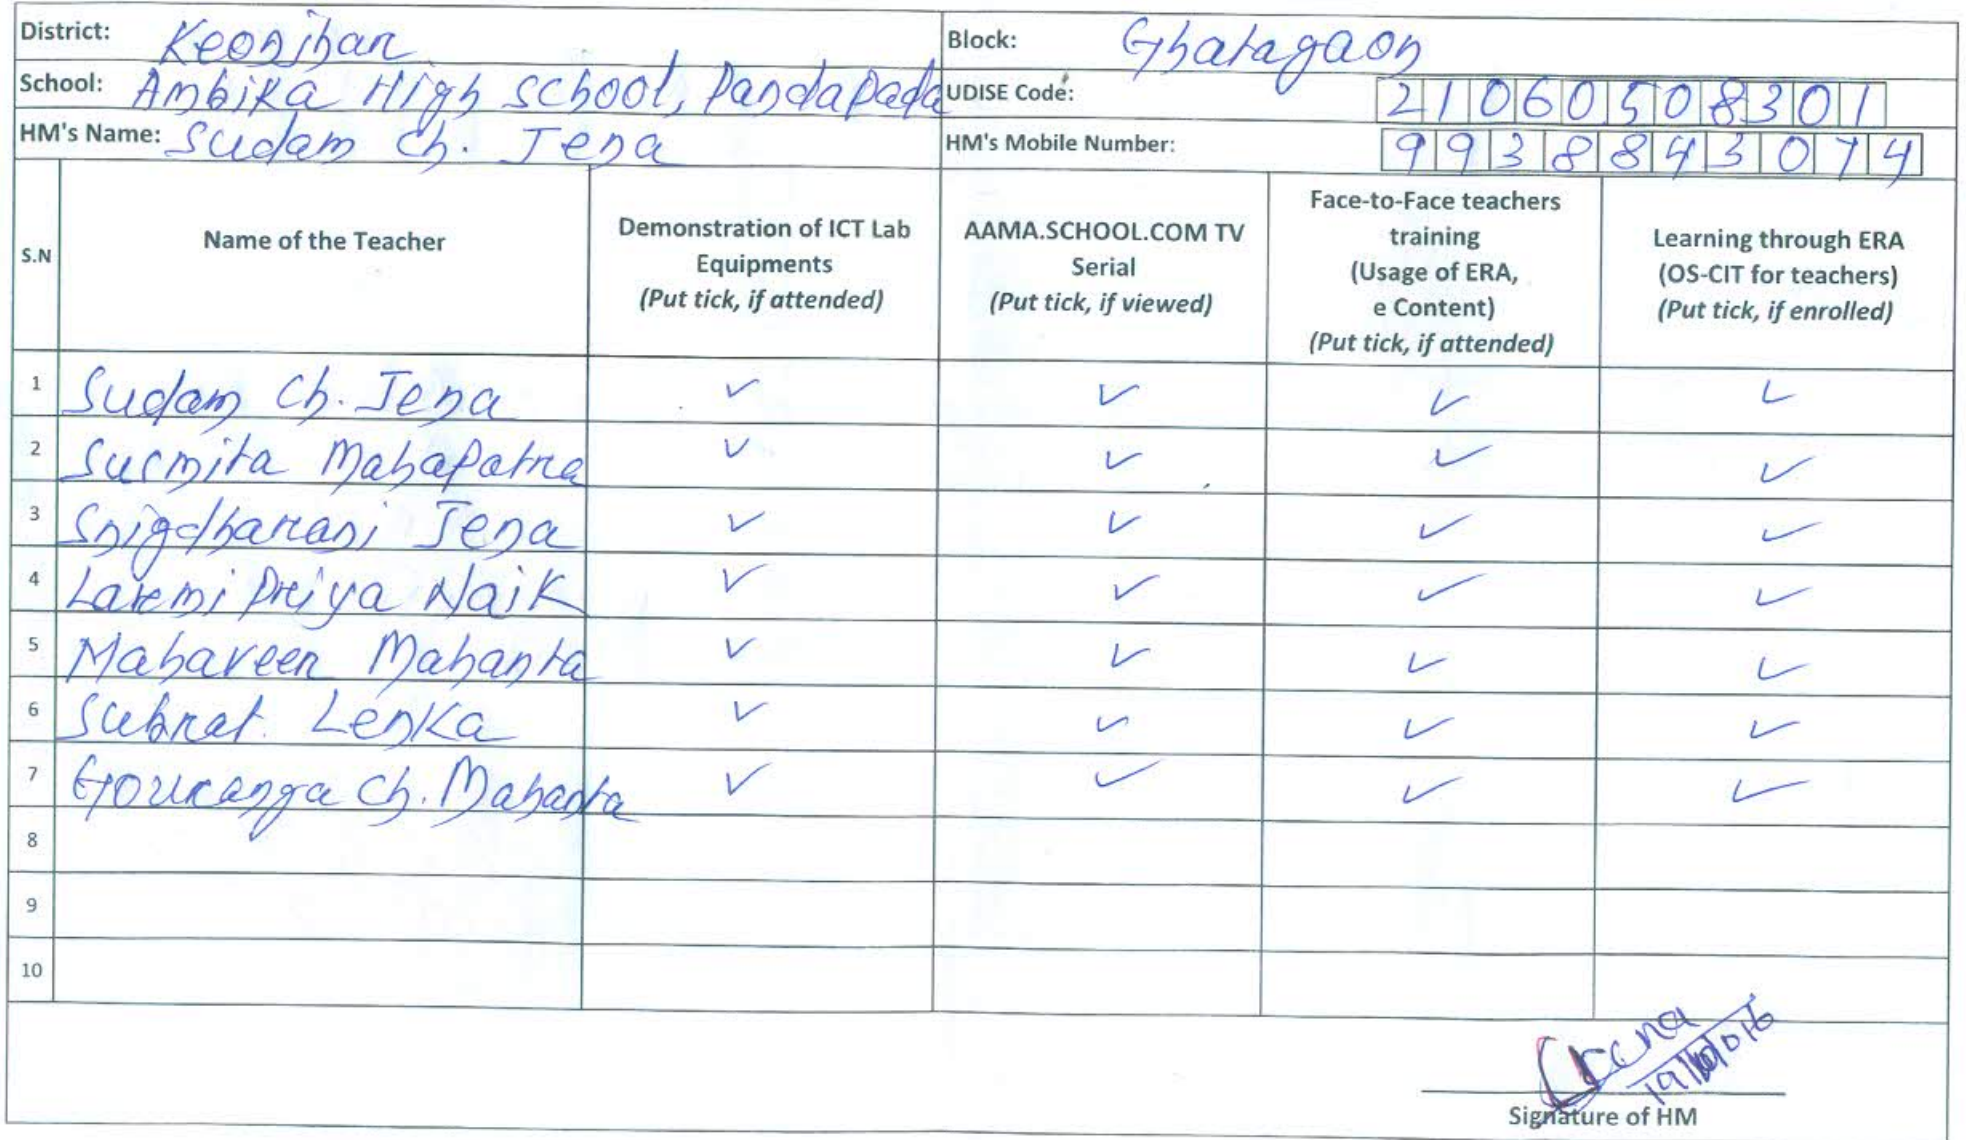 District: Keonjhar Block: Ghatagaon
School: Ambika High School, Pandapada UDISE Code: 21060508301
HM's Name: Sudam Ch. Jena HM's Mobile Number: 9938843074
S.N Name of the Teacher Demonstration of ICT Lab Equipments (Put tick, if attended) AAMA.SCHOOL.COM TV Serial (Put tick, if viewed) Face-to-Face teachers training (Usage of ERA, e Content) (Put tick, if attended) Learning through ERA (OS-CIT for teachers) (Put tick, if enrolled)
1 Sudam Ch. Jena ✓ ✓ ✓ ✓
2 Susmita Mahapatra ✓ ✓ ✓ ✓
3 Snigdharani Jena ✓ ✓ ✓ ✓
4 Laxmi Priya Naik ✓ ✓ ✓ ✓
5 Mahaveer Mahanta ✓ ✓ ✓ ✓
6 Subrat. Lenka ✓ ✓ ✓ ✓
7 Gouranga Ch. Mahanta ✓ ✓ ✓ ✓
8
9
10
Signature of HM